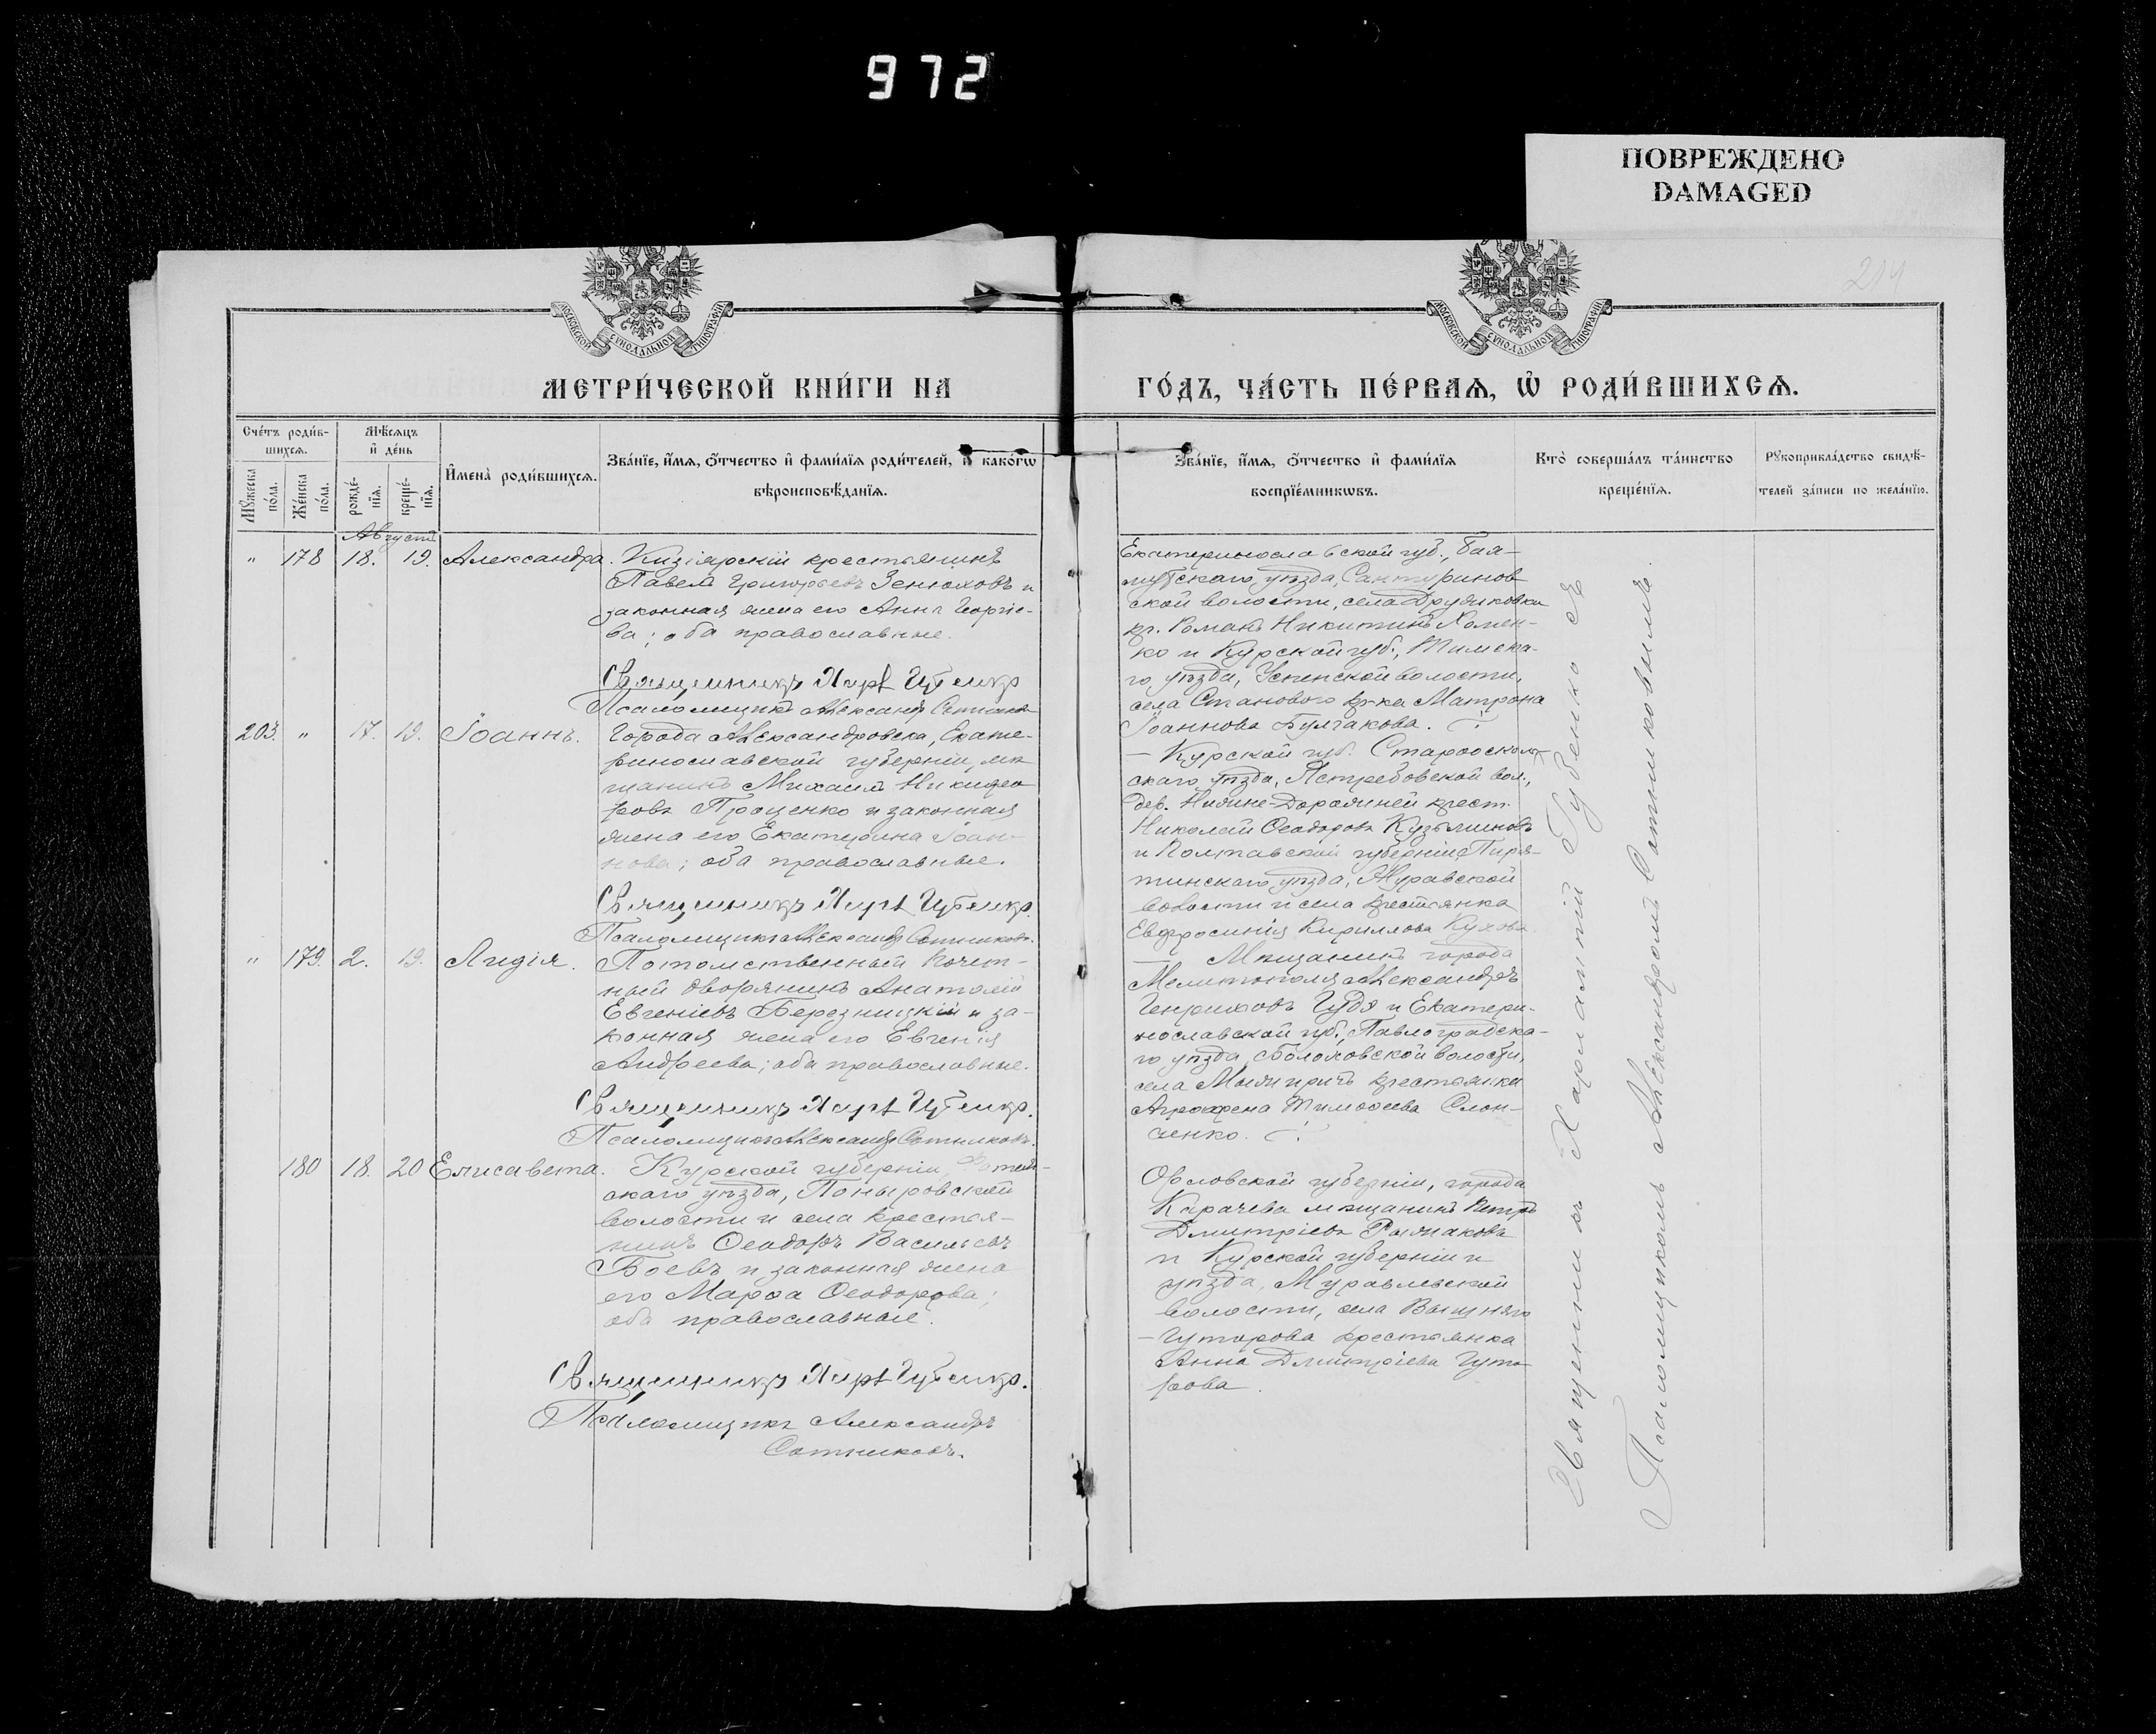 972
ПОВРЕЖДЕНО
DAMAGED
214
МОСКОВСКОЙ СУНОДАЛЬНОЙ ТИПОГРАФІИ
МОСКОВСКОЙ СУНОДАЛЬНОЙ ТИПОГРАФІИ
МЕТРИ́ЧЕСКОЙ КНИ́ГИ НА
ГО́ДЪ, ЧА́СТЬ ПЕ́РВАѦ, Ѡ҆ РОДИ́ВШИХСѦ.
Сче́тъ роди́в-
шихсѧ.
Мꙋ́жеска по́ла.
Же́нска по́ла.
Мѣ́сѧцъ
и҆ де́нь
рожде́-нїѧ.
креще́-нїѧ.
И҆мена̀ роди́вшихсѧ.
Зва́нїе, и҆́мѧ, ѻ҆́тчество и҆ фами́лїѧ роди́телей, и҆ како́гѡ
вѣроисповѣ́данїѧ.
Зва́нїе, и҆́мѧ, ѻ҆́тчество и҆ фами́лїѧ
воспрїе́мникѡвъ.
Кто̀ соверша́лъ та́инство
креще́нїѧ.
Рꙋкоприкла́дство свидѣ́-
телей за́писи по жела́нїю.
Августъ
" 178 18. 19. Александра.
Кизіярскій крестьянинъ
Павелъ Григорьевъ Зенюховъ и
законная жена его Анна Георгіе-
ва; оба православные.
Священникъ Харл Губенко
Псаломщикъ Александръ Сотников
Екатеринославской губ., Бах-
мутскаго уѣзда, Сантуринов
ской волости, села Дружковки
кр. Романъ Никитинъ Хомен-
ко и Курской губ., Тимска-
го уѣзда, Успенской волости,
села Становаго кр-ка Матрона
Іоаннова Булгакова.
203. " 17. 19. Іоаннъ.
Города Александровска, Екате-
ринославской губерніи, мѣ
щанинъ Михаилъ Никифо
ровъ Проценко и законная
жена его Екатерина Іоан-
нова; оба православные.
Священникъ Харл Губенко.
Псаломщикъ Александръ Сотниковъ.
— Курской губ. Старооскол-
скаго уѣзда, Ястребовской вол.,
дер. Нижне-Дорожней крест.
Николай Ѳеодоровъ Кузьминовъ
и Полтавской губерніи, Пиря-
тинскаго уѣзда, Журавской
волости и села крестьянка
Евфросинія Кириллова Кухова
" 179. 2. 19. Лидія.
Потомственный Почет-
ный дворянинъ Анатолій
Евгеніевъ Березницкій и за-
конная жена его Евгенія
Андреева; оба православные.
Священникъ Харл Губенко.
Псаломщикъ Александръ Сотниковъ.
— Мѣщанинъ города
Мелитополя Александръ
Генриховъ Гудз и Екатери-
нославской губ., Павлоградска-
го уѣзда, Болоховской волости,
села крестьянка
Агрофена Тимоѳеева Слон-
ченко.
180 18. 20 Елисавета.
Курской губерніи, Фатеж-
скаго уѣзда, Поныровской
волости и села крестья-
нинъ Ѳеодоръ Васильевъ
Боевъ и законная жена
его Марѳа Ѳеодорова;
оба православные.
Священникъ Харл Губенко.
Псаломщикъ Александръ
Сотниковъ.
Орловской губерніи, города
Карачева мѣщанинъ Петръ
Дмитріевъ Рыжаковъ
и Курской губерніи и
уѣзда, Муравлевской
волости, села Вышняго
— Гуторова крестьянка
Анна Дмитріева Гуто-
рова.
Священникъ Харлампій Губенко съ
Псаломщикомъ Александромъ Сотниковымъ.